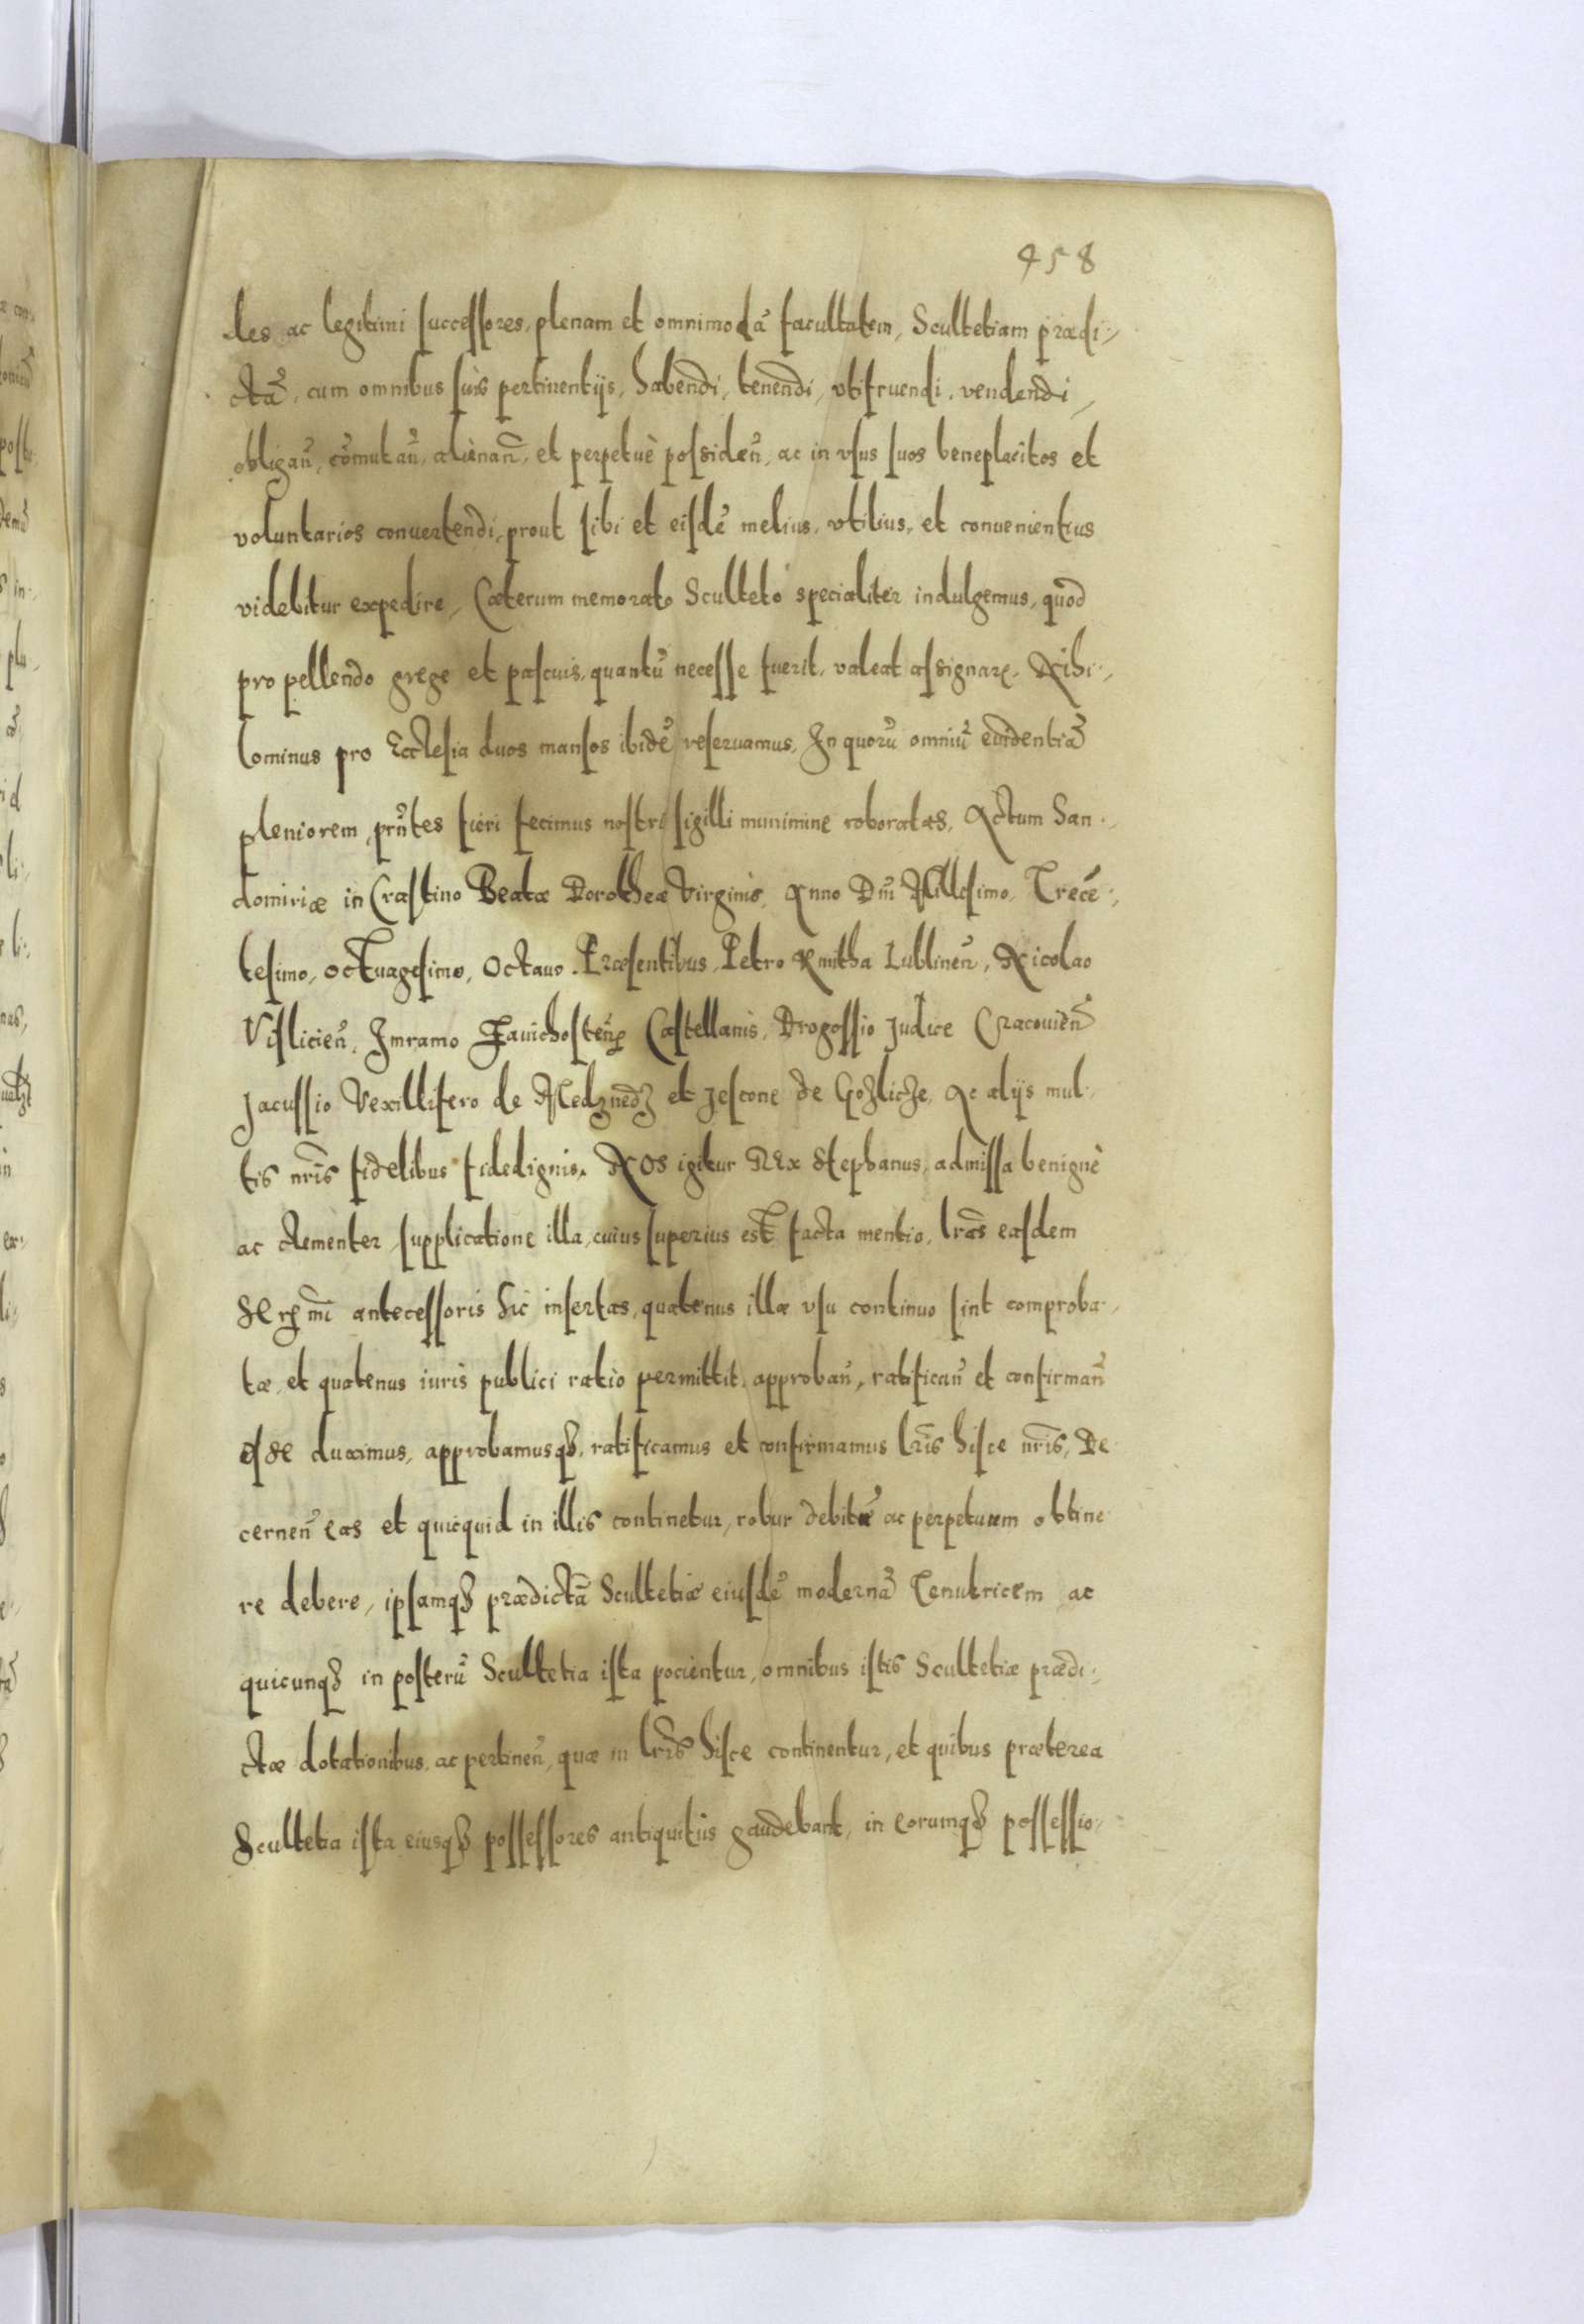 458
des ac legitimi successores, plenam et omnimodã facultatem, Scultetiam prædi-,
ctã, cum omnibus suis pertinentijs, habendi, tenendi, vtifruendi, vendendi,
obligañ, cõmutañ, alienañ, et perpetuè possideñ, ac in vsus suos beneplacitos et
voluntarios convertendi, prout sibi et eisdẽ melius, vtilius, et convenientius
videbitur expedire, Cæterum memorato Sculteto specialiter indulgemus, quod
pro pellendo grege et pascuis, quantũ necesse fuerit, valeat assignare. Nihi-,
lominus pro Ecclesia duos mansos ibidẽ reseruamus, In quorũ omniũ euidentiã
pleniorem, pñtes fieri fecimus nostri sigilli munimine roboratas, Actum San-,
domiriæ in Crastino Beatæ Dorotheæ Virginis, Anno Dñi Millesimo, Trecẽ-,
tesimo, octuagesimo, Octauo. Præsentibus, Petro Kmitha Lublineñ, Nicolao
Visliciеñ, Imramo Zauichosteñ Castellanis, Drogossio Judice Cracovieñ
Jacussio Vexillifero de Medznedz et Jescone de Gozlicze, Ac alijs mul-
tis nr̃is fidelibus fidedignis. Nos igitur REx Stephanus, admissa benignè
ac clementer supplicatione illa, cuius superius est facta mentio, lr̃as easdem
Serm̃i antecessoris hic insertas, quatenus illæ vsu continuo sint comproba-,
tæ, et quatenus iuris publici ratio permittit, approbañ, ratificañ et confirmañ
esse duximus, approbamusq3, ratificamus et confirmamus lr̃is hisce nr̃is, De
cerneñ eas et quicquid in illis continetur, robur debitũ ac perpetuum obtine
re debere, ipsamq3 prædictã Scultetiæ eiusdẽ modernã Tenutricem ac
quicunq3 in posterũ Scultetia ista pocientur, omnibus istis Scultetiæ prædi-,
ctæ dotationibus, ac pertineñ, quæ in lr̃is hisce continentur, et quibus præterea
Scultetia ista eiusq3 possessores antiquitùs gaudebant, in eorumq3 possessio-